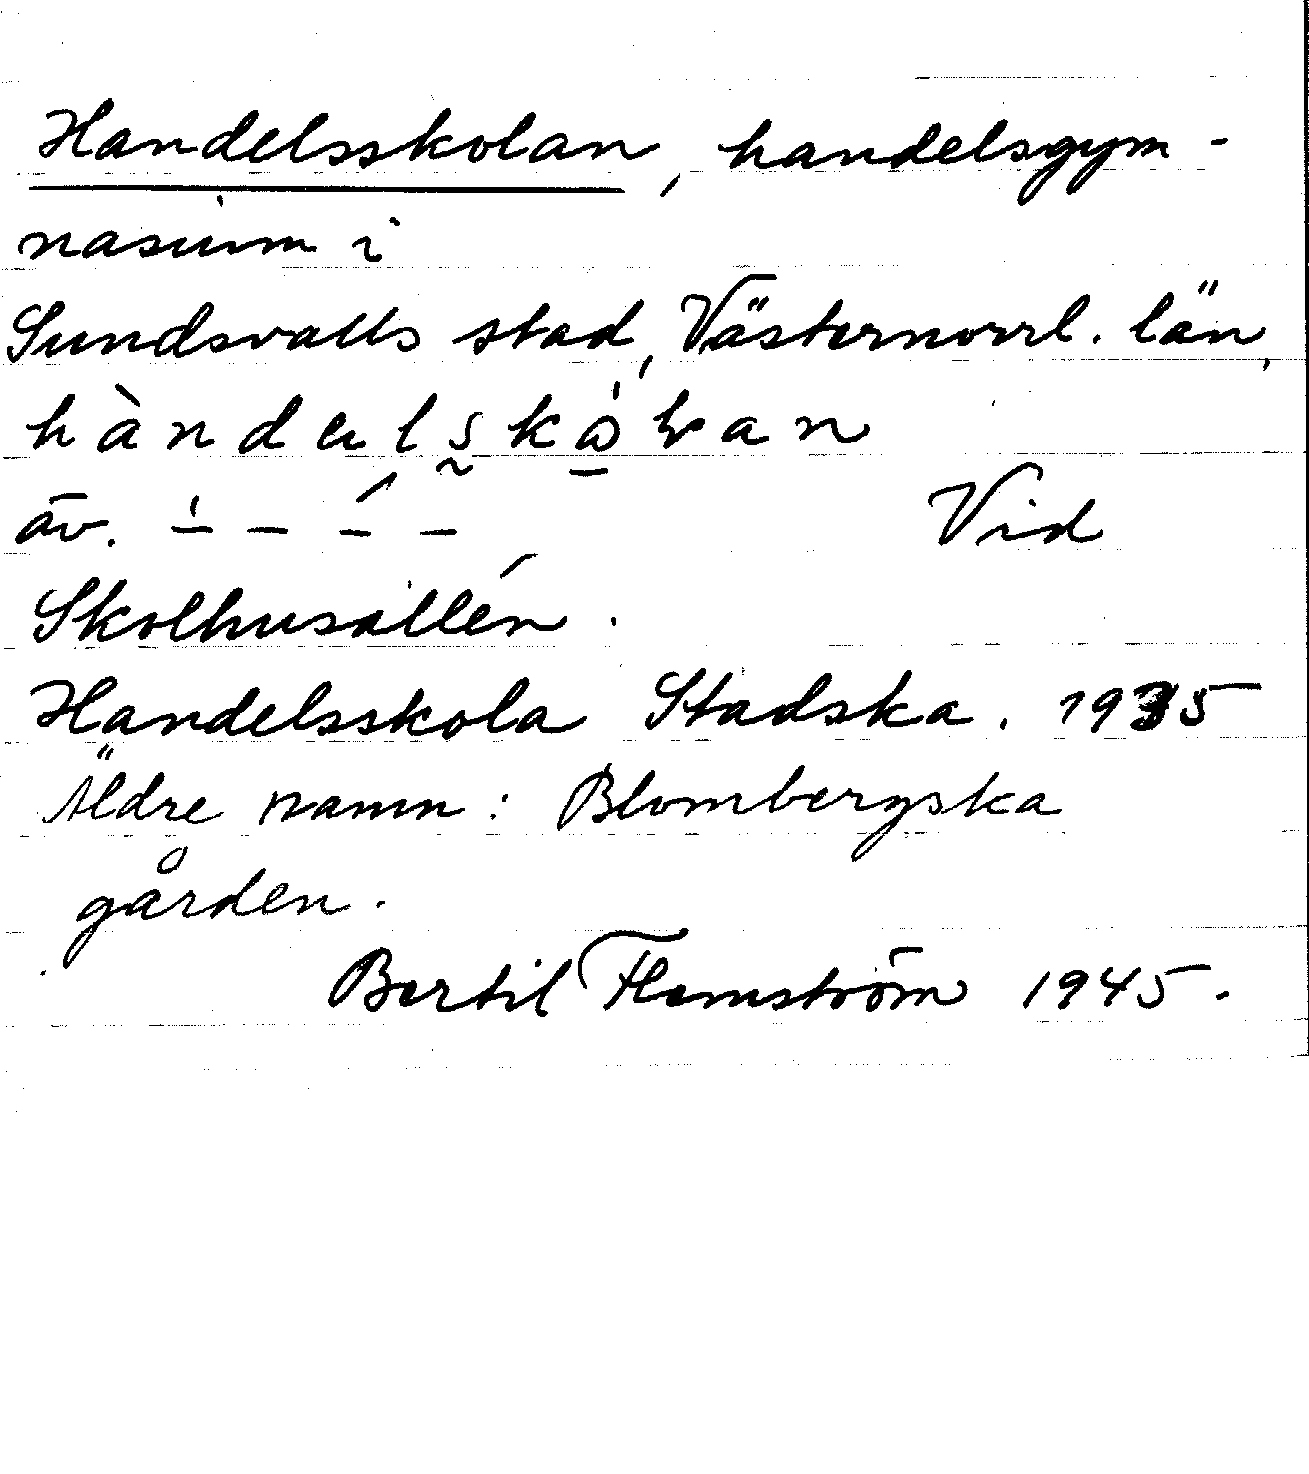 Handelsskolan, handelsgym-
nasium i
Sundsvalls stad, Västernorrl. län,
av.
Vid
Skolhusallén.
Handelsskola Stadska. 1935
Äldre namn: Blombergska
gården.
Bertil Flemström 1945.